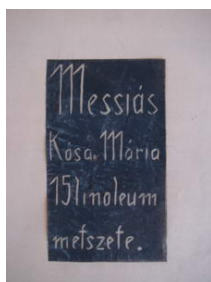 Messiás
Kósa Mária
15 linoleum
metszete.